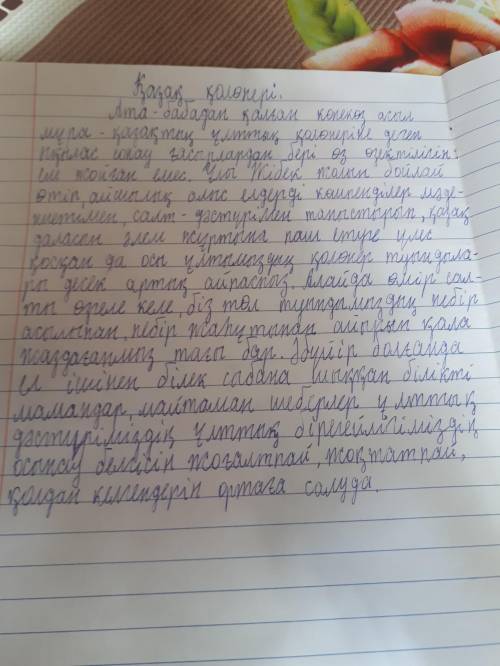 Қазақ қолөнері.
Ата-бабадан қалған көнекөз асыл
мұра - қазақтың ұлттық қолөнеріне деген
ықылас сонау ғасырлардан бері өз өзектілігін
еш жойған емес. Ұлы Жібек жолын бойлай
өтіп, айшылық алыс елдерді көшпенділер мәде-
ниетімен, салт-дәстүрімен таныстырып, қазақ
даласын әлем жұртына паш етуге үлес
қосқан да осы ұлтымыздың қолөнер туындыла-
ры десек артық айтпаспыз. Алайда өмір сал-
ты өзгеле келе, біз төл туындымыздың небір
асылынан, небір жауһарынан айырып қала
жаздағанымыз тағы бар. Әбүйір болғанда
ел ішінен білек сыбана шыққан білікті
мамандар, майталман шеберлер ұлттық
дәстүріміздің ұлттық бірегейлігіміздің
осынау белгісін жоғалтпай, жоқтатпай,
қолдан келгендерін ортаға салуда.